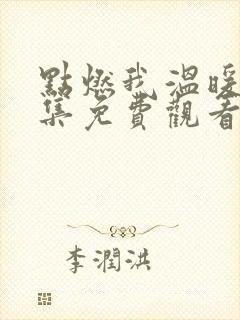 點燃我溫暖
集免費觀看
李潤洪